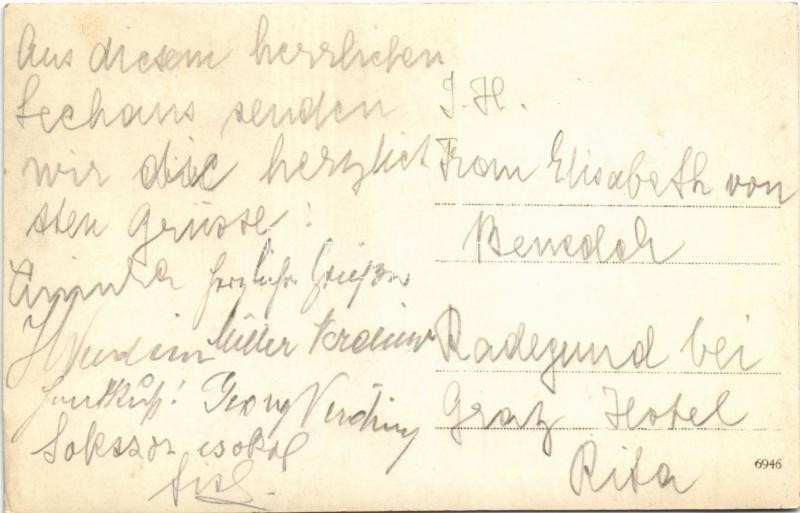 Aus diesem herrlichen
Seehaus senden
wir die herzlich
sten Grüsse!
herzliche Grüße
Handkuß! Georg
Sokszor csókol
I. H.
Frau Elisabeth von
Radegund bei
Graz Hotel
Rita
6946